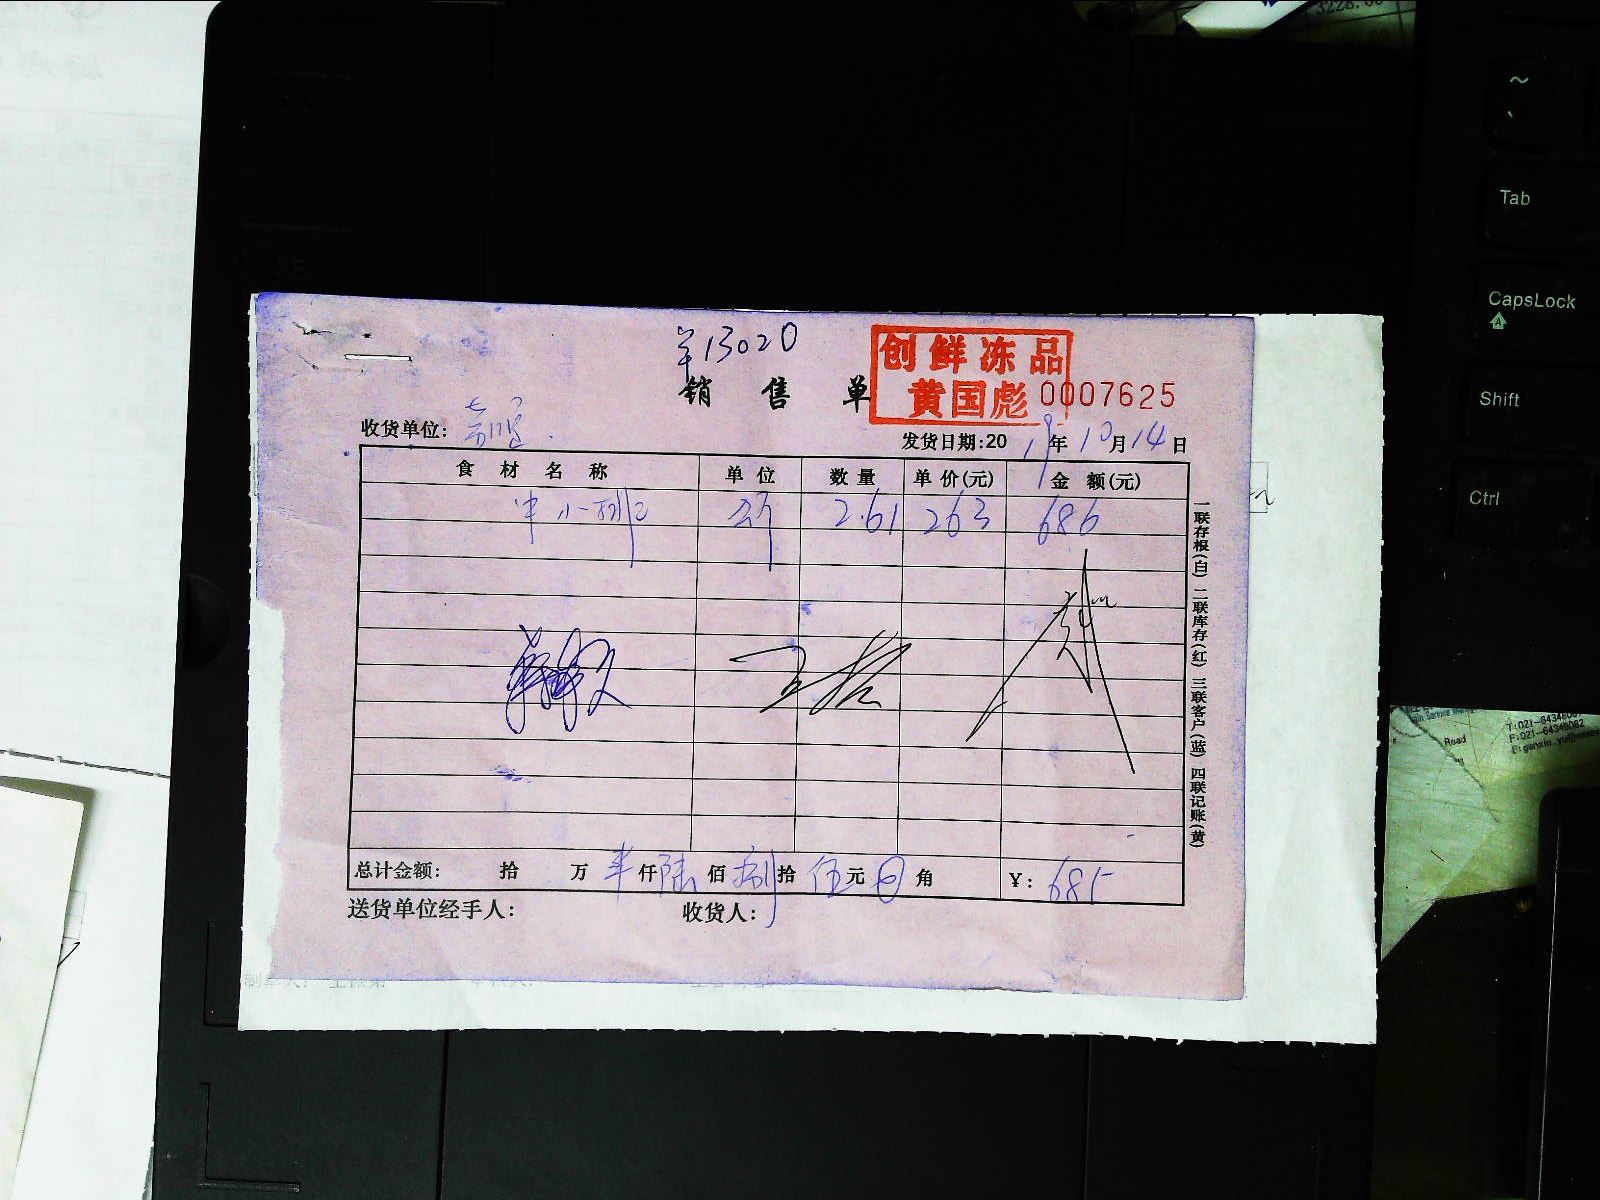 3228.00
~
、
Tab
CapsLock
Shift
Ctrl
羊13020
创鲜冻品
黄国彪
销售单
0007625
收货单位:
发货日期:2019年10月14日
食材名称 单位 数量 单价(元) 金额(元)
牛小排 斤 2.61 263 686
王
总计金额: 拾 万 仟陆佰捌拾伍元 角 ¥: 685
送货单位经手人: 收货人:
一联存根(白) 二联库存(红) 三联客户(蓝) 四联记账(黄)
Road
T:021-643480
F:021-64348082